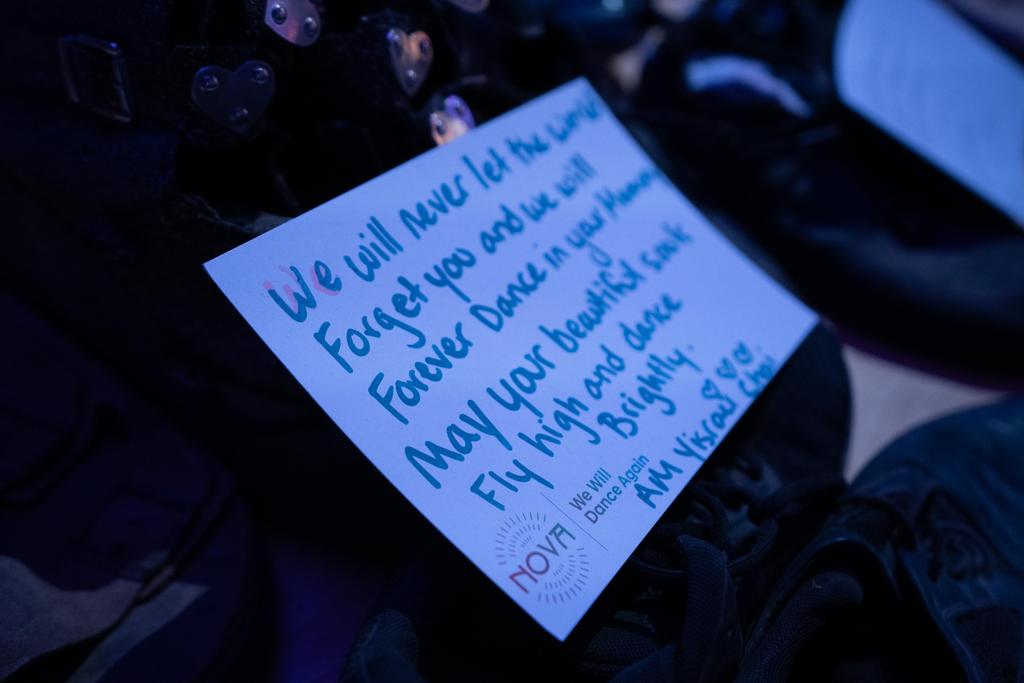 We will never let the world
Forget you and we will
Forever Dance in your Memory
May your beautiful souls
Fly high and dance
Brightly.
AM Yisrael Chai
NOVA
We Will
Dance Again